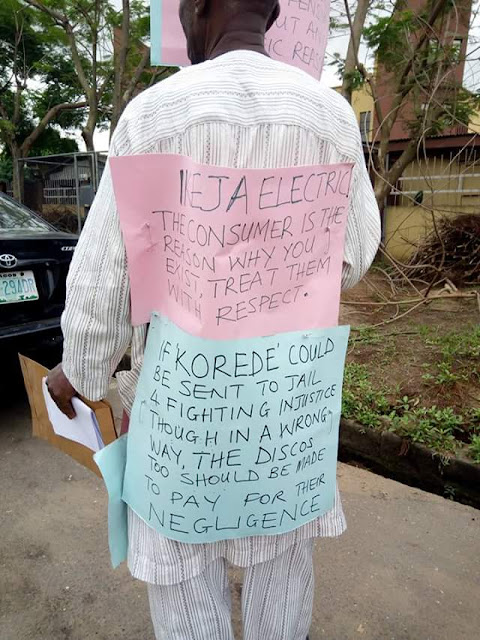 OUT AN
IC REASON
IKEJA ELECTRIC!
THE CONSUMER IS THE
REASON WHY YOU
EXIST, TREAT THEM
WITH RESPECT.
IF 'KOREDE' COULD
BE SENT TO JAIL
4 FIGHTING INJUSTICE
THOUGH IN A WRONG
WAY, THE DISCOS
TOO SHOULD BE MADE
TO PAY FOR THEIR
NEGLIGENCE